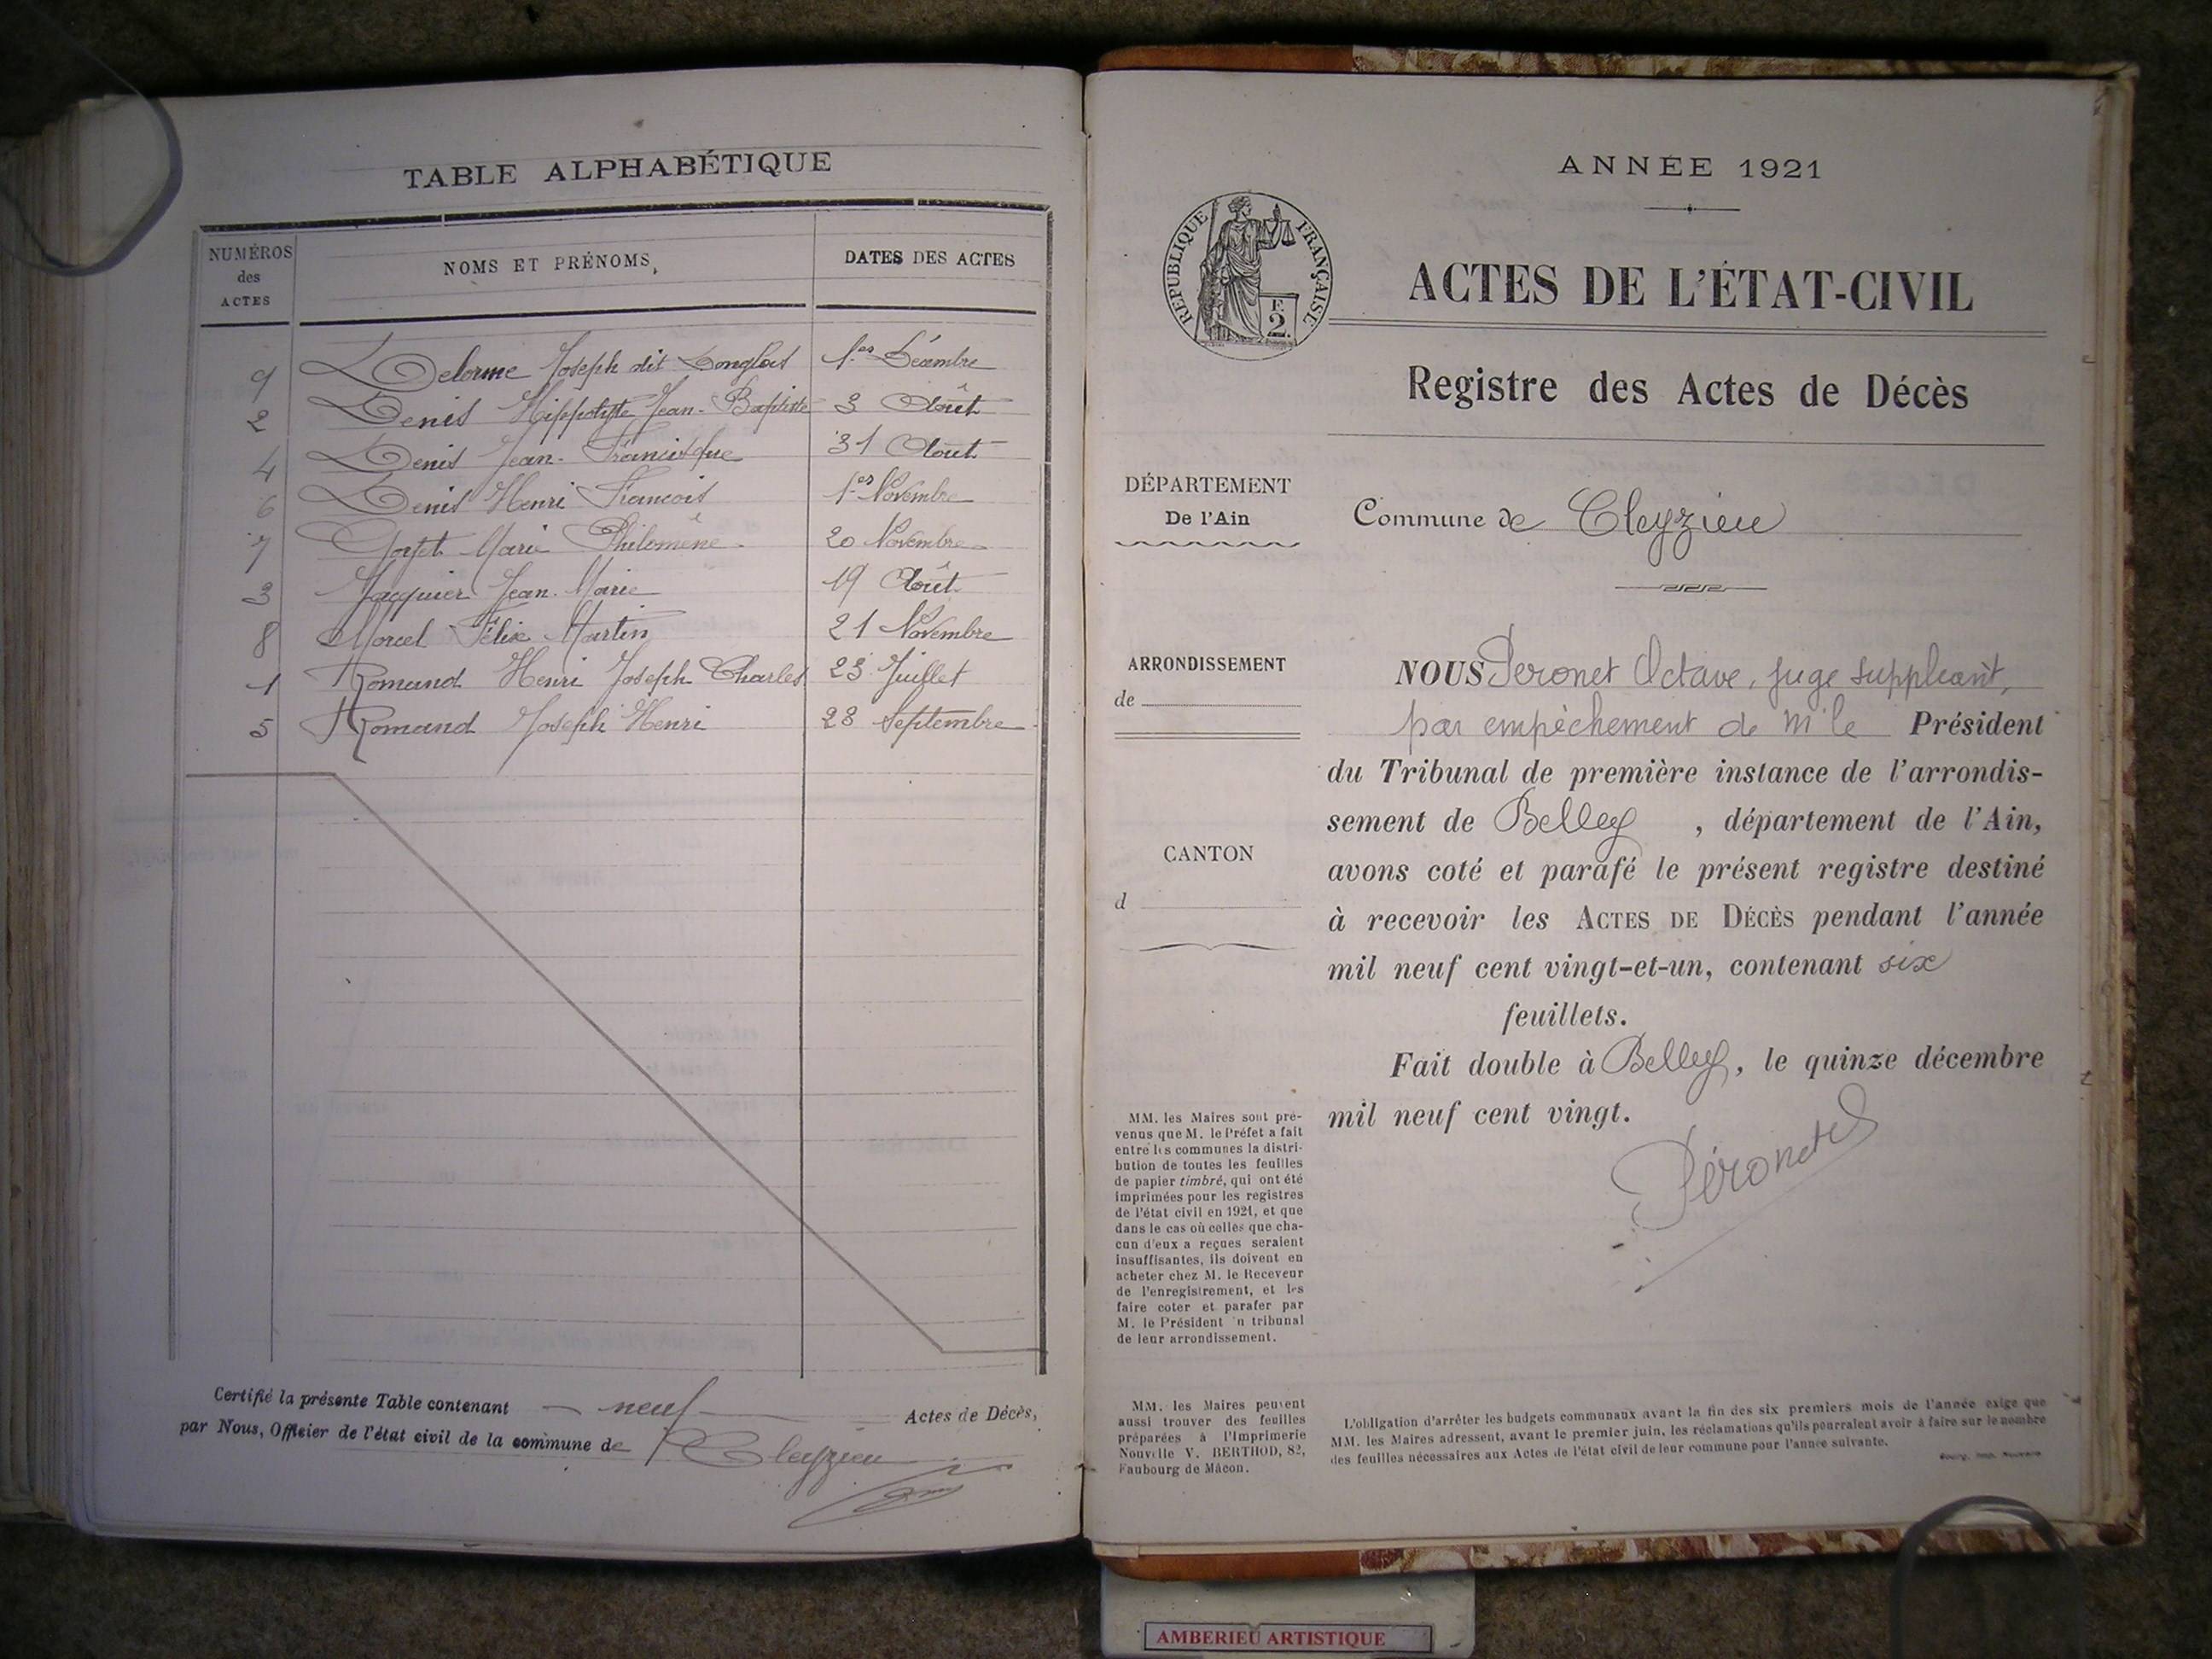 TABLE ALPHABÉTIQUE
NUMÉROS des ACTES
NOMS ET PRÉNOMS
DATES DES ACTES
9 Delorme Joseph dit Longlois 1er Décembre
2 Denis Hippolyte Jean-Baptiste 3 Août
4 Denis Jean-Francisque 31 Août
6 Denis Henri François 1er Novembre
7 Marie Philomène 20 Novembre
3 Jacquier Jean-Marie 19 Août
8 Morel Félix Martin 21 Novembre
1 Romand Henri Joseph Charles 23 Juillet
5 Romand Joseph Henri 28 Septembre
Certifié la présente Table contenant neuf Actes de Décès,
par Nous, Officier de l'état civil de la commune de Cleyzieu
ANNÉE 1921
RÉPUBLIQUE FRANÇAISE
F.
2.
ACTES DE L'ÉTAT-CIVIL
Registre des Actes de Décès
DÉPARTEMENT
De l'Ain
Commune de Cleyzieu
ARRONDISSEMENT
de
CANTON
d
NOUS Peronet Octave, juge suppléant,
par empêchement de M le Président
du Tribunal de première instance de l'arrondis-
sement de Belley, département de l'Ain,
avons coté et parafé le présent registre destiné
à recevoir les ACTES DE DÉCÈS pendant l'année
mil neuf cent vingt-et-un, contenant six
feuillets.
Fait double à Belley, le quinze décembre
mil neuf cent vingt.
Péronet
MM. les Maires sont pré-
venus que M. le Préfet a fait
entre les communes la distri-
bution de toutes les feuilles
de papier timbré, qui ont été
imprimées pour les registres
de l'état civil en 1921, et que
dans le cas où celles que cha-
cun d'eux a reçues seraient
insuffisantes, ils doivent en
acheter chez M. le Receveur
de l'enregistrement, et les
faire coter et parafer par
M. le Président u tribunal
de leur arrondissement.
MM. les Maires peuvent
aussi trouver des feuilles
préparées à l'Imprimerie
Nouvelle V. BERTHOD, 82,
Faubourg de Mâcon.
L'obligation d'arrêter les budgets communaux avant la fin des six premiers mois de l'année exige que
MM. les Maires adressent, avant le premier juin, les réclamations qu'ils pourraient avoir à faire sur le nombre
des feuilles nécessaires aux Actes de l'état civil de leur commune pour l'année suivante.
AMBERIEU ARTISTIQUE